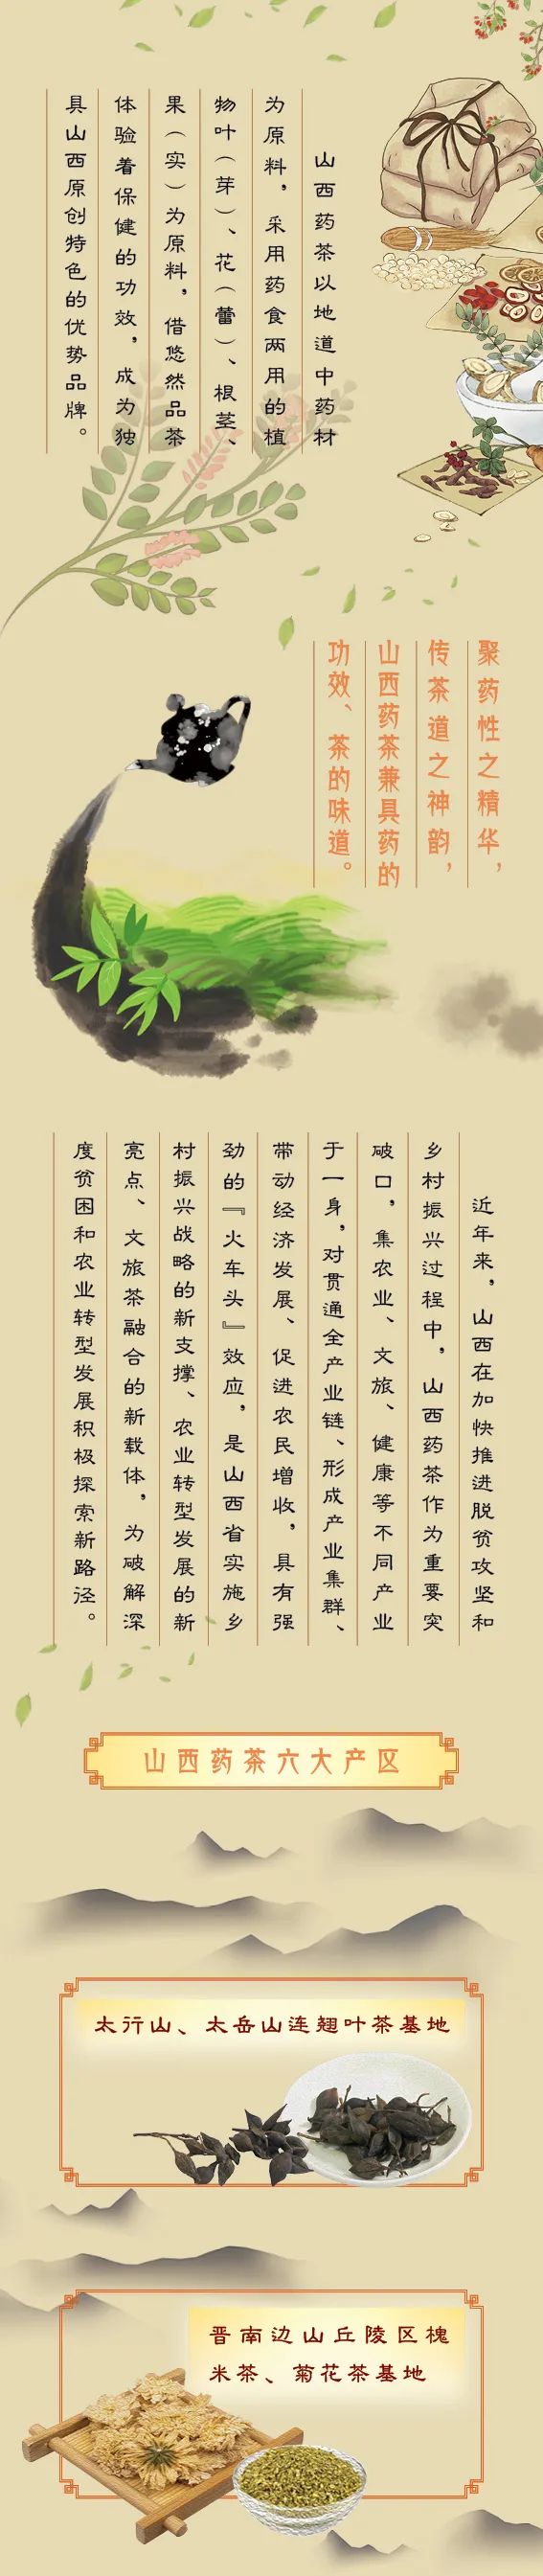 山西药茶以地道中药材
为原料，采用药食两用的植
物叶（芽）、花（蕾）、根茎、
果（实）为原料，借悠然品茶
体验着保健的功效，成为独
具山西原创特色的优势品牌。
聚药性之精华，
传茶道之神韵，
山西药茶兼具药的
功效、茶的味道。
近年来，山西在加快推进脱贫攻坚和
乡村振兴过程中，山西药茶作为重要突
破口，集农业、文旅、健康等不同产业
于一身，对贯通全产业链、形成产业集群、
带动经济发展、促进农民增收，具有强
劲的『火车头』效应，是山西省实施乡
村振兴战略的新支撑、农业转型发展的新
亮点、文旅茶融合的新载体，为破解深
度贫困和农业转型发展积极探索新路径。
山西药茶六大产区
太行山、太岳山连翘叶茶基地
晋南边山丘陵区槐
米茶、菊花茶基地